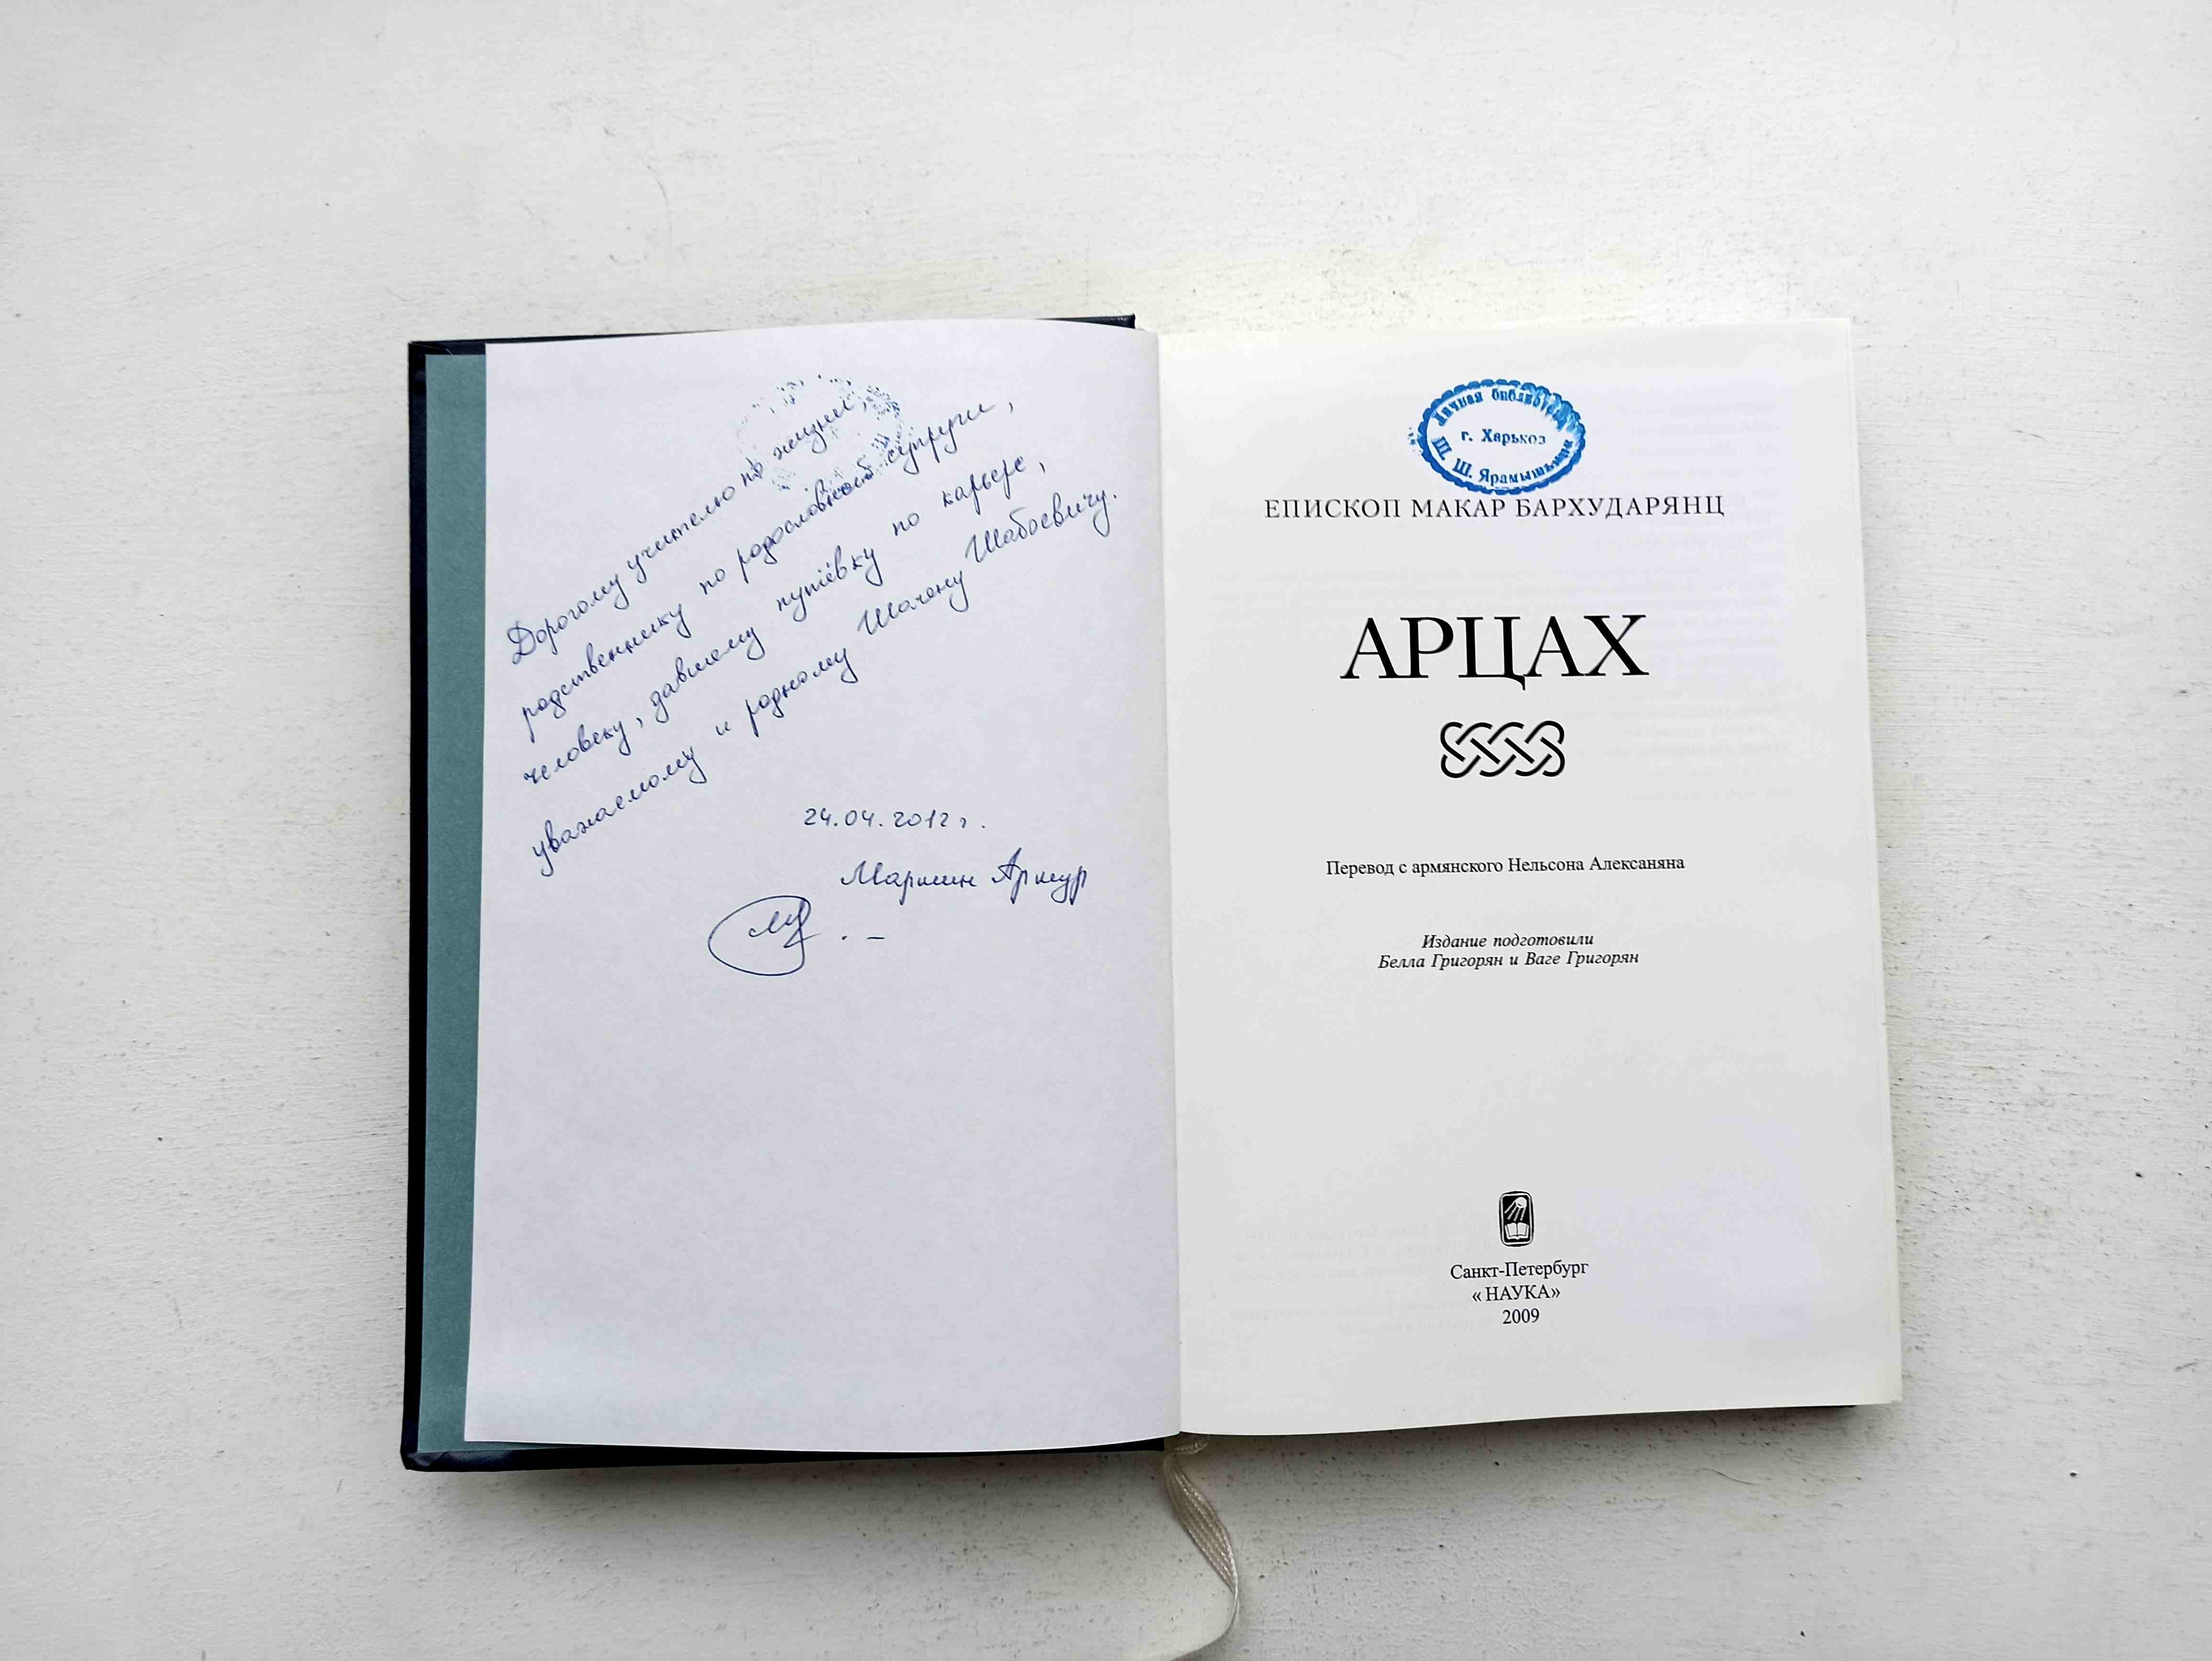 Дорогому учителю по жизни,
родственнику по родословной супруги,
человеку, давшему путёвку по карьере,
уважаемому и родному Шалену Шабоевичу.
24.04.2012 г.
Артур
Личная библиотека
г. Харьков
Ш. Ш.
ЕПИСКОП МАКАР БАРХУДАРЯНЦ
АРЦАХ
Перевод с армянского Нельсона Алексаняна
Издание подготовили
Белла Григорян и Ваге Григорян
Санкт-Петербург
«НАУКА»
2009